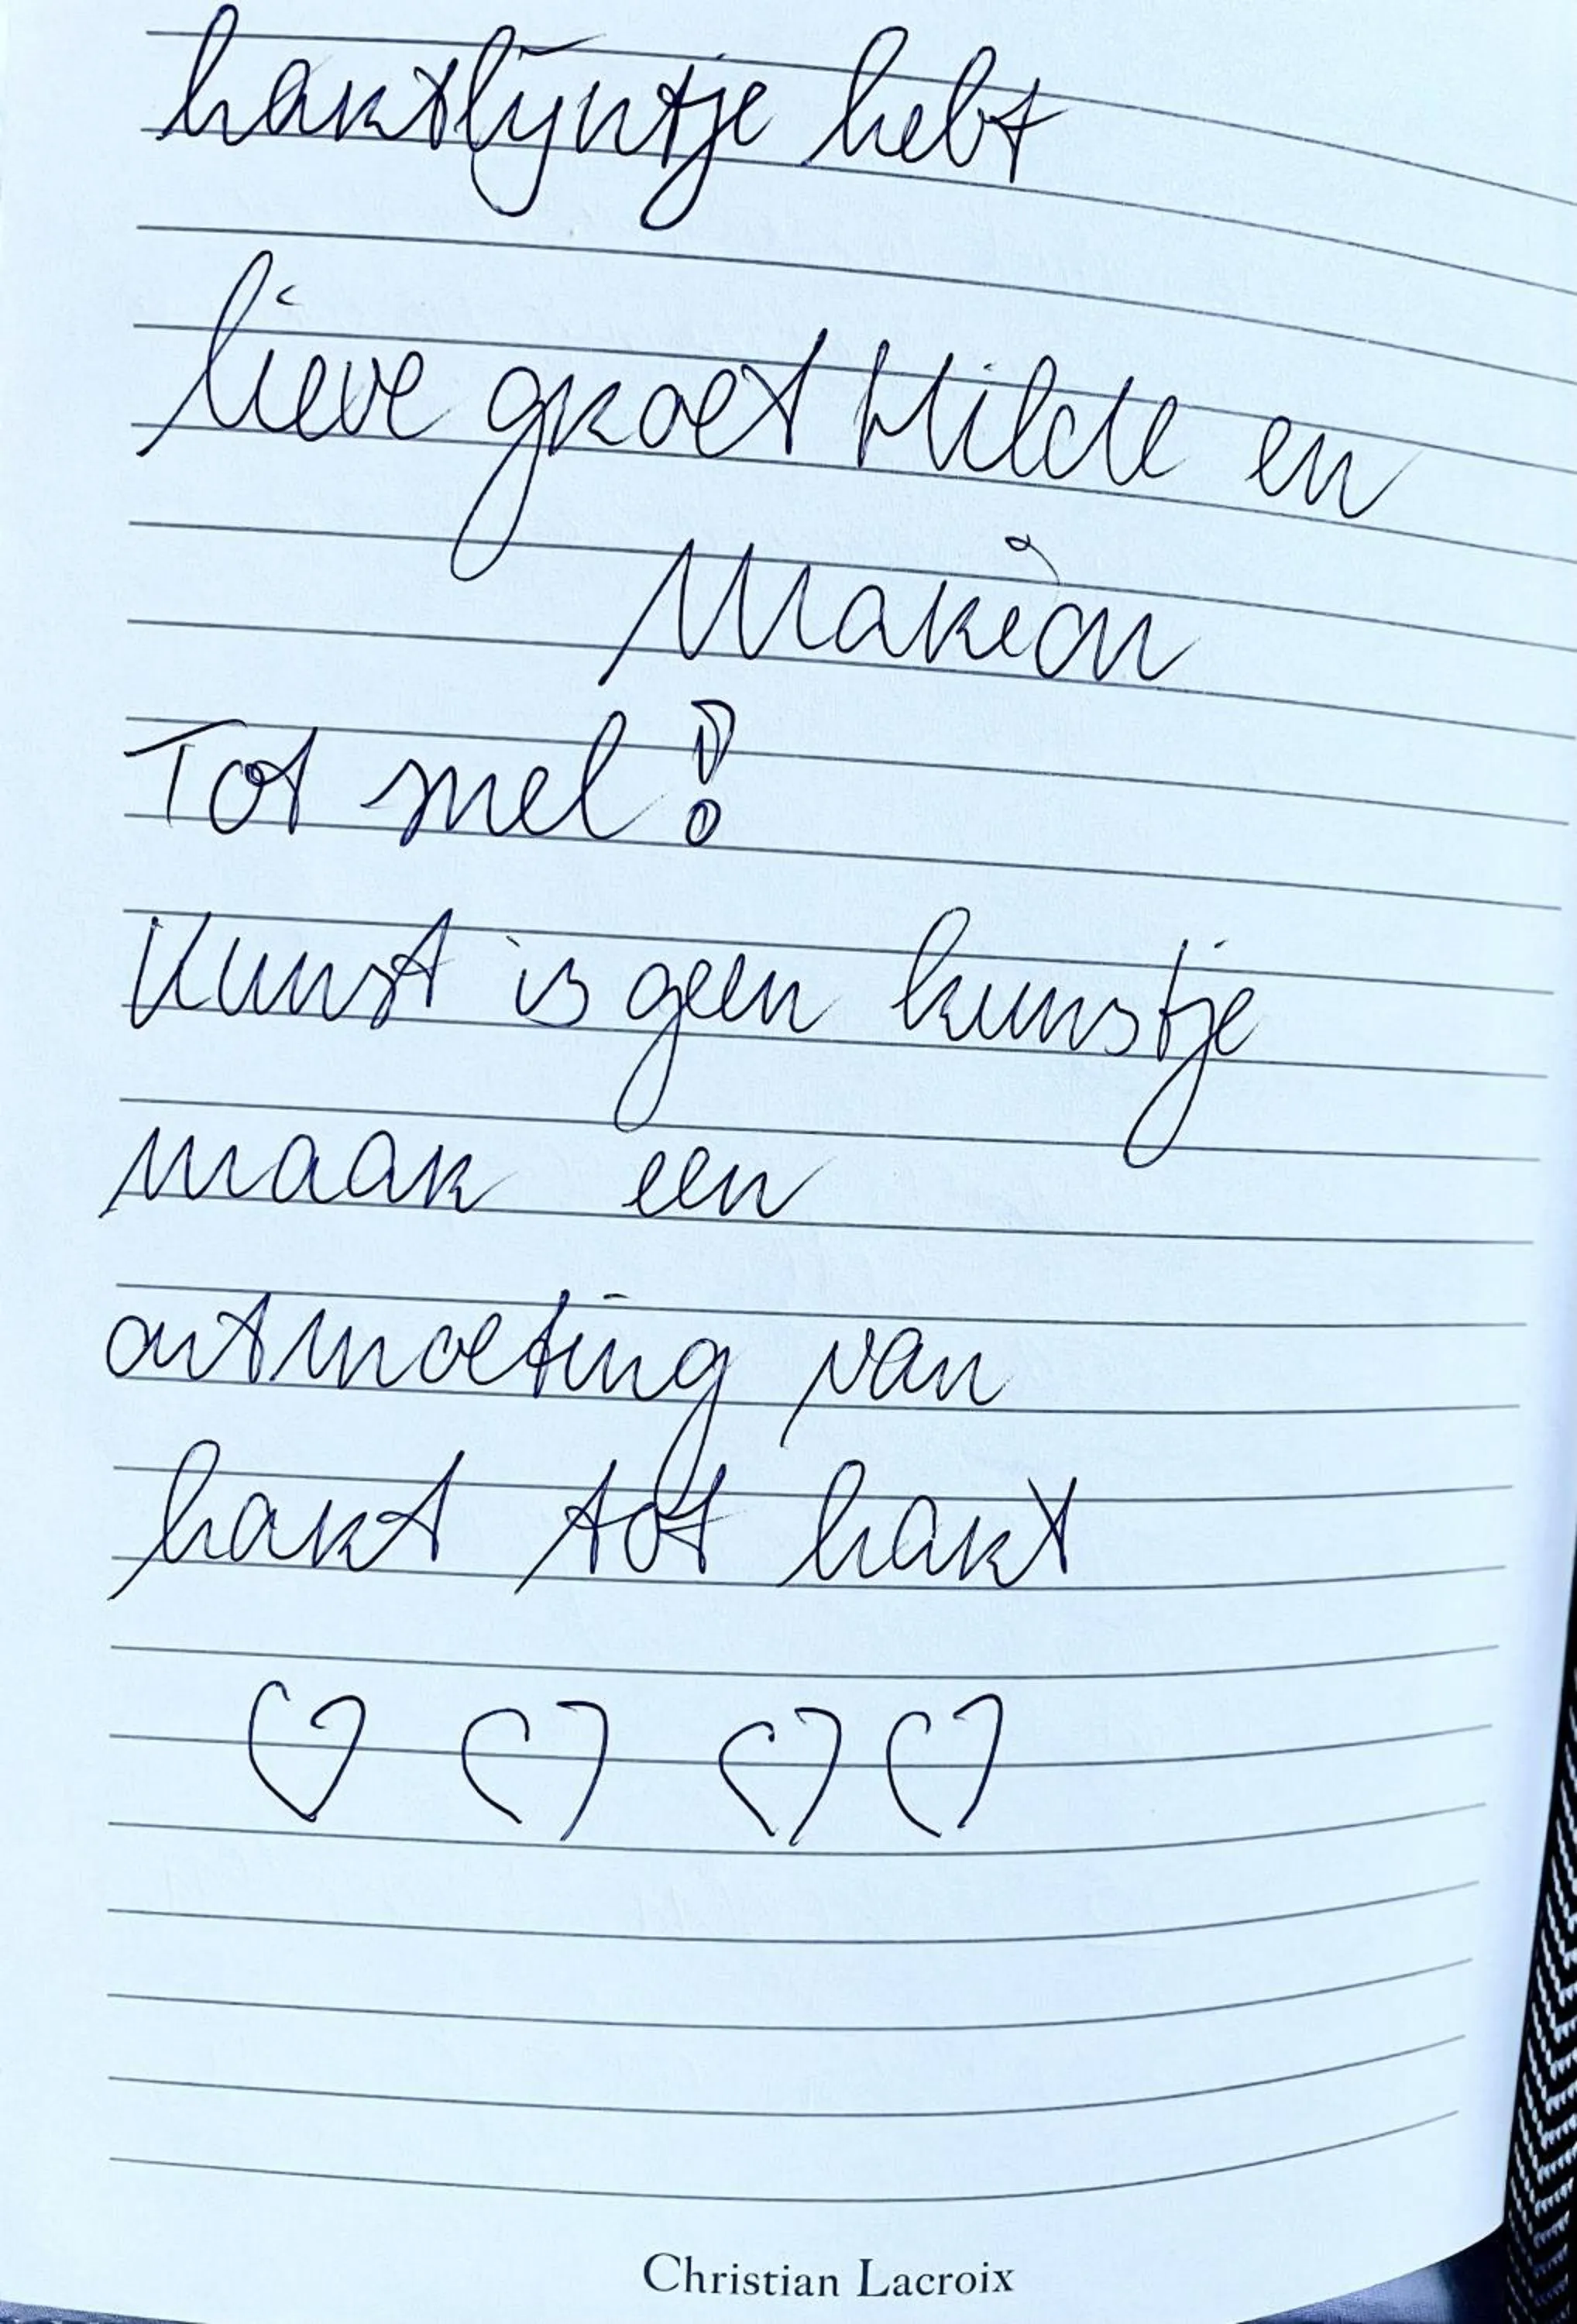 hartlijntje hebt
lieve groet Hilde en
Marion
Tot snel!
Kunst is geen kunstje
maak een
ontmoeting van
hart tot hart
Christian Lacroix